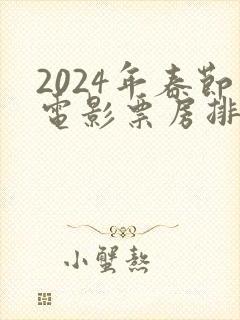 2024年春節
電影票房排
小蟹熬